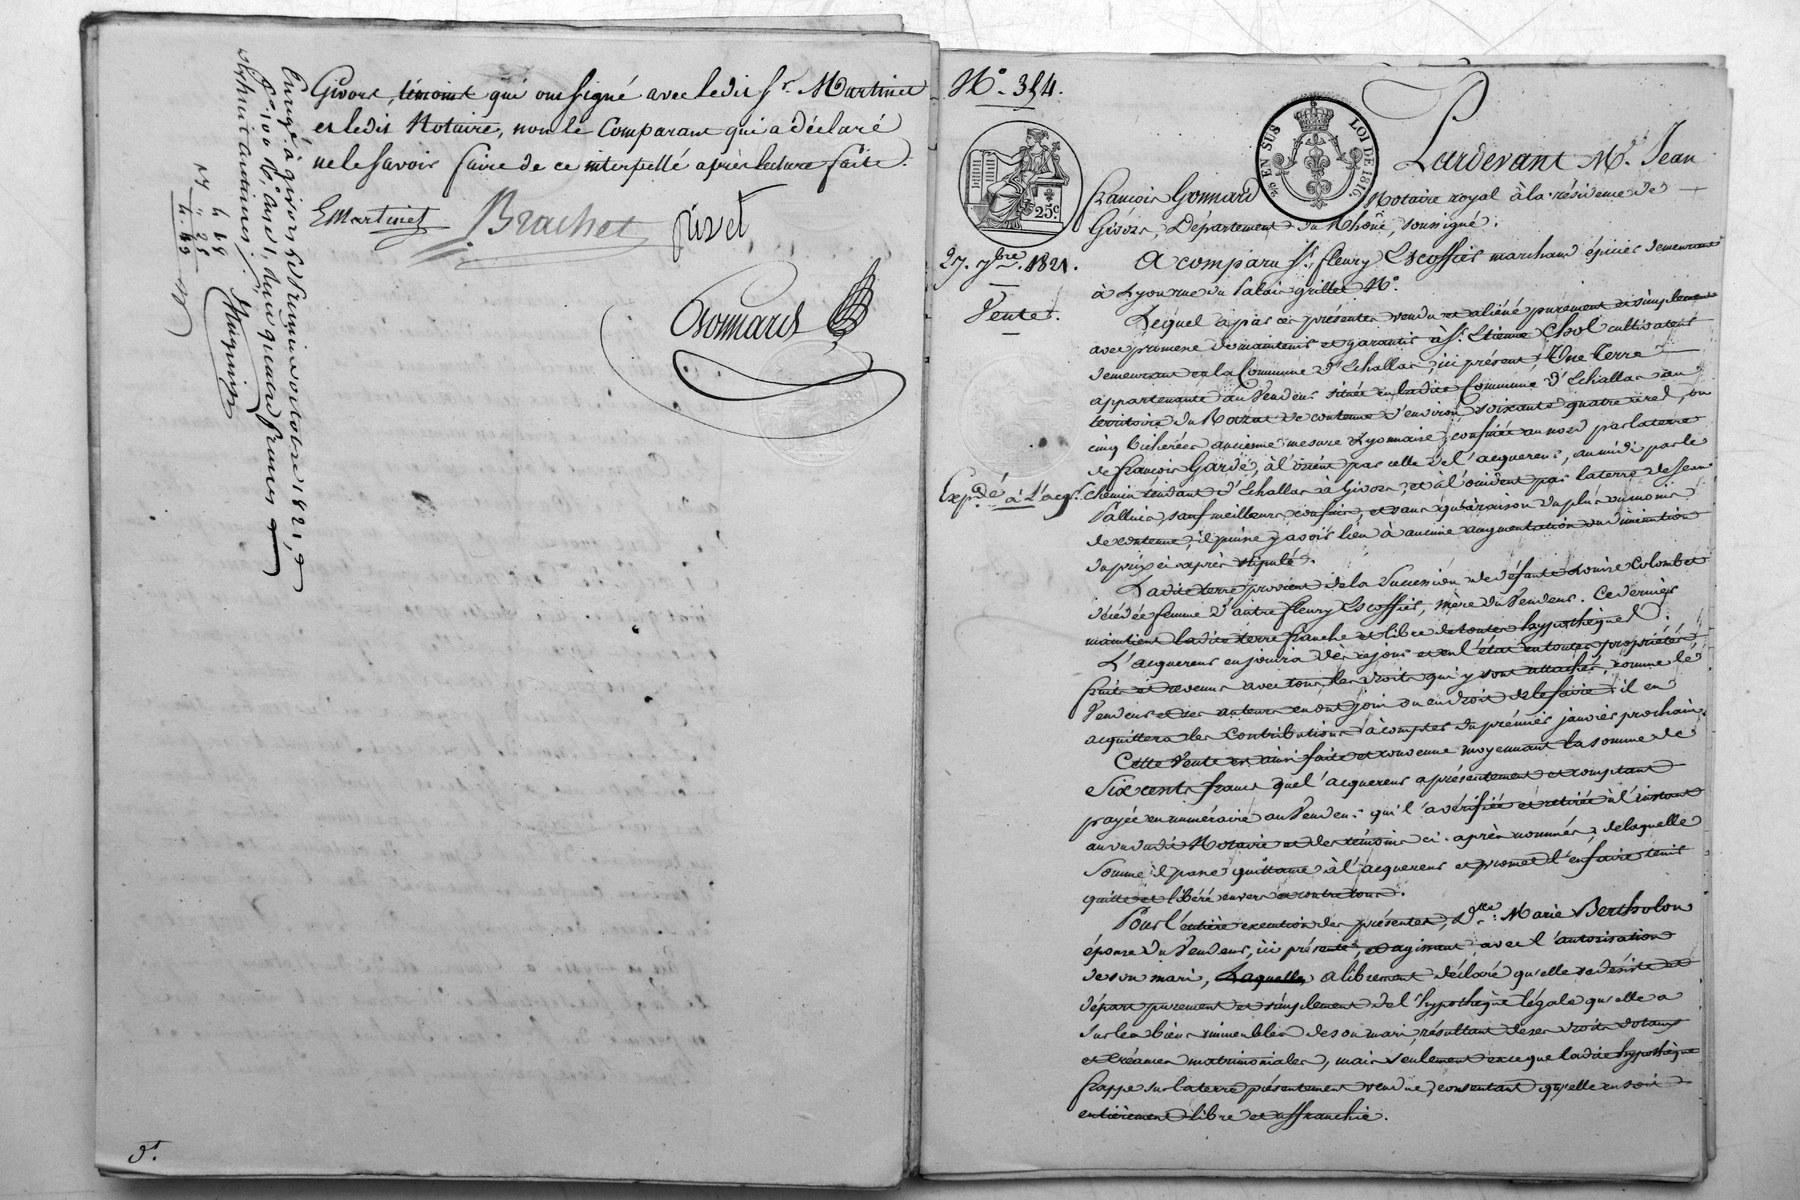 Givors, témoins qui ont signé avec ledit Sr. Martinet
et ledit Notaire, non le Comparant qui a déclaré
ne le savoir faire de ce interpellé après lecture faite.
EMartinet Brachet rivet
Gonnard
Enregé à givors le premier octobre 1821, f°
100 Vo, case 1, deux quatre francs
quarante neuf centimes
4 48
" 25
4 49
5.
N°. 354.
EN SUS LOI DE 1816
25c
27. 7bre. 1821.
Vente.
Expdé à L'acqr.
Pardevant Me. Jean
francois Gonnard Notaire royal à la résidence de
Givors, Département du Rhône, soussigné.
A comparu Sr. fleury Escoffier marchand épicier demeurant
à Lyon rue du Palais grillet N°.
Lequel a par ces présentes vendu et aliéné purement et simplement
avec promesse de maintenir et garantir à Sr. Etienne Chol cultivateur
demeurant en la Commune d'Echallas, ici présent, Une terre
appartenante au Vendeur située en ladite Commune d'Echallas au
territoire du de contenue d'environ soixante quatre ares, ou
cinq bicherées ancienne mesure Lyonnaise, confinée au nord par la terre
de francois Garde, à l'orient par celle de l'acquereur, au midi par le
chemin tendant d'Echallas à Givors, et à l'occident par la terre de Jean
sauf meilleurs confins, et sans qu'à raison du plus ou moins
de contenue, il puisse y avoir lieu à aucune augmentation ou diminution
du prix ci-après stipulé.
Ladite terre provient de la Succession de défunte Louise Colombet
décédée femme d'autre fleury Escoffier, mère du Vendeur. Ce dernier
maintient ladite terre franche et libre de toutes hypothèques.
L'acquereur en jouira dès ce jour et en l'état en toutes propriétés
fruits et revenus avec tous les droits qui y sont attachés, comme le
Vendeur et ses auteurs en ont joui ou eu droit de le faire; il en
acquittera les Contributions à compter du premier janvier prochain.
Cette Vente est ainsi faite et convenue moyennant la somme de
Six cents francs que l'acquereur a présentement et comptant
payée en numéraire au Vendeur qui l'a vérifiée et retirée à l'instant
au vu dudit Notaire et des témoins ci-après nommés, de laquelle
Somme il passe quittance à l'acquereur et promet l'en faire tenir
quitte et libéré envers et contre tous.
Pour l'entière execution des présentes, Dlle. Marie Bertholon
épouse du Vendeur, ici présente, et agissant avec l'autorisation
de son mari, Laquelle a librement déclaré qu'elle se désiste et
départ purement et simplement de l'hypothèque légale qu'elle a
sur les biens immeubles de son mari, résultant de ses droits dotaux
et créances matrimoniales, mais seulement en ce que ladite hypothèque
frappe sur la terre présentement vendue, consentant qu'elle en soit
entièrement libre et affranchie.